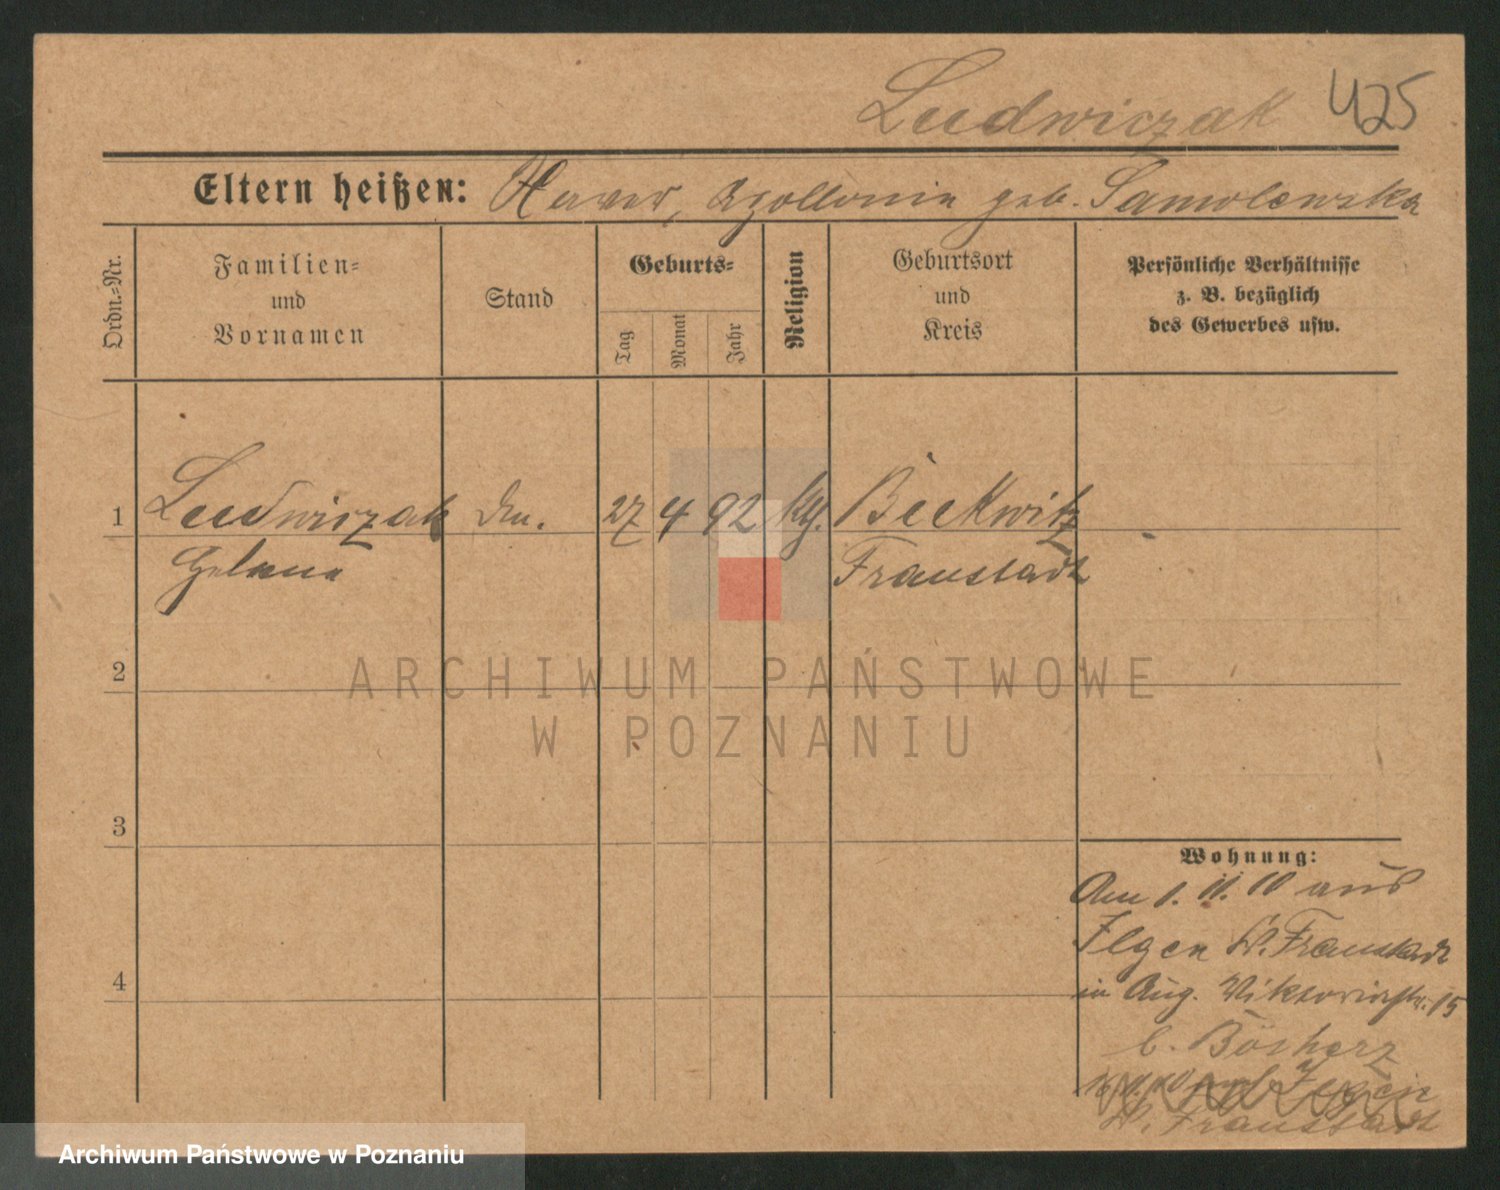 Ludwiczak 425
Eltern heißen: Xaver, Apollonia geb. Samolewska
Ordn.-Nr.
Familien-
und
Vornamen
Stand
Geburts-
Tag
Monat
Jahr
Religion
Geburtsort
und
Kreis
Persönliche Verhältnisse
z. B. bezüglich
des Gewerbes usw.
1 Ludwiczak 27 4 92
Fraustadt
2
3
4
Wohnung:
Am 1. 11. 10 aus
Ilgen Kr. Fraustadt
in Aug. Viktoriastr. 15
b.
Kr. Fraustadt
ARCHIWUM PAŃSTWOWE
W POZNANIU
Archiwum Państwowe w Poznaniu